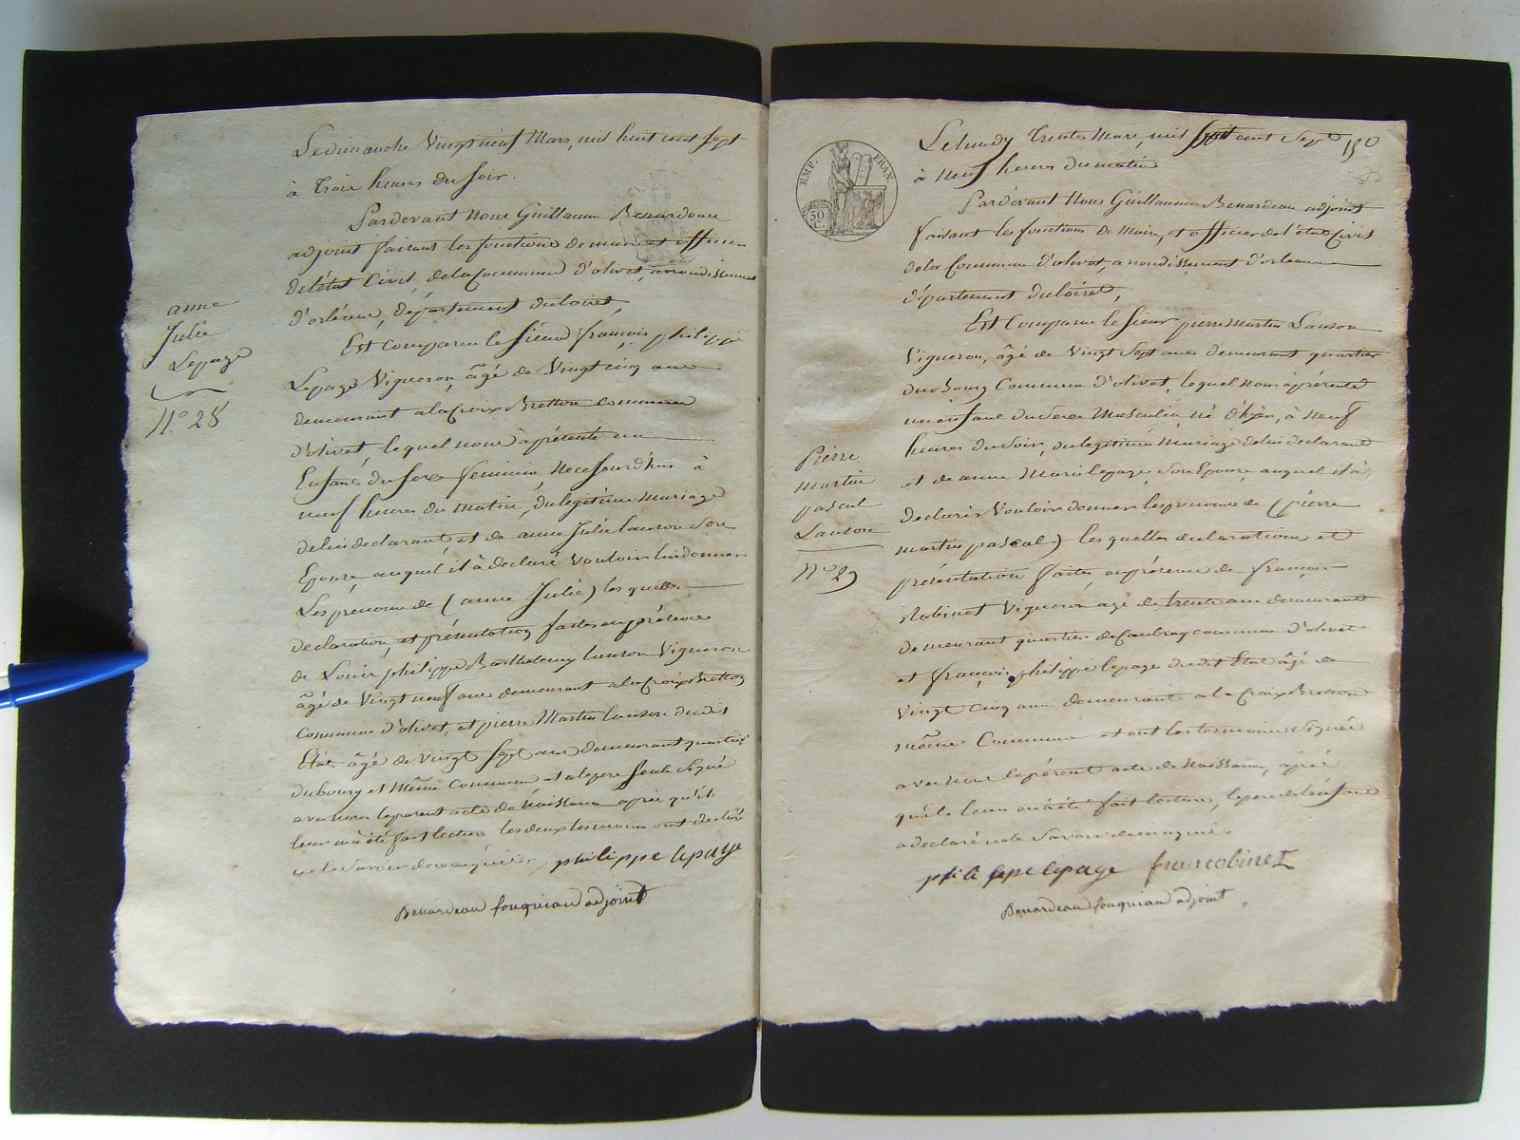 Le dimanche Vingt neuf Mars, mil huit cent sept
à trois heures du soir.
Pardevant Nous Guillaume Benardeau
adjoint faisant les fonctions de maire et officier
de l'état Civil, de la Commune d'olivet, arrondissement
d'orléans, département du loiret,
Est comparu le sieur françois philippe
Lepage Vigneron, âgé de Vingt cinq ans
demeurant a la croix Bretton commune
d'olivet, lequel nous à présenté un
Enfant du sexe féminin Née ce jourd'hui à
neuf heures du matin, du légitime mariage
de lui déclarant et de anne Julie lauson son
Epouse auquel il à déclaré Vouloir lui donner
Les prénoms de (anne Julie) lesquelles
déclaration, et présentation faites en présence
de Louis philippe Barthelemy lauson Vigneron
âgé de Vingt neuf ans demeurant a la croix Bretton
commune d'olivet, et pierre Martin lauson du dit
Etat âgé de vingt sept ans demeurant quartier
du bourg et Même Commune et a le père seul signé
avec nous le présent acte de Naissance après qu'il
leur en à été fait lecture les deux temoins ont déclaré
ne le savoir de ce enquis. philippe lepage
Benardeau fouqueau adjoint
anne
Julie
Lepage
N.º 28
EMP. FRAN.
50
C.
150
Le lundy trente Mars, mil huit cent Sept
à Neuf heures du matin
Pardevant Nous Guillaume Benardeau adjoint
faisant les fonctions de Maire, et officier de l'état Civil
de la Commune d'olivet, arrondissement d'orleans
département du loiret,
Est Comparu le sieur pierre Martin Lauson
Vigneron, âgé de Vingt sept ans demeurant quartier
du bourg Commune d'olivet, lequel nous à présenté
un enfant du sexe Masculin, né d'hier, à neuf
heures du soir, du legitime mariage de lui declarant
et de anne Marie lepage son Epouse auquel il à
declaré Vouloir donner les prénoms de (pierre
martin pascal) lesquelles declaration et
présentation faites en présence de françois
Robinet Vigneron agé de trente ans demeurant
demeurant quartier de Caubray commune d'olivet
et françois philippe lepage du dit Etat âgé de
Vingt cinq ans demeurant a la croix Bretton
même Commune et ont les temoins signés
avec nous le présent acte de Naissance, après
qu'il leur en à été fait lecture, le père de l'enfant
a declaré ne le savoir de ce enquis.
philippe lepage francobinet
Benardeau fouqueau adjoint
Pierre
martin
pascal
Lauson
N.º 29